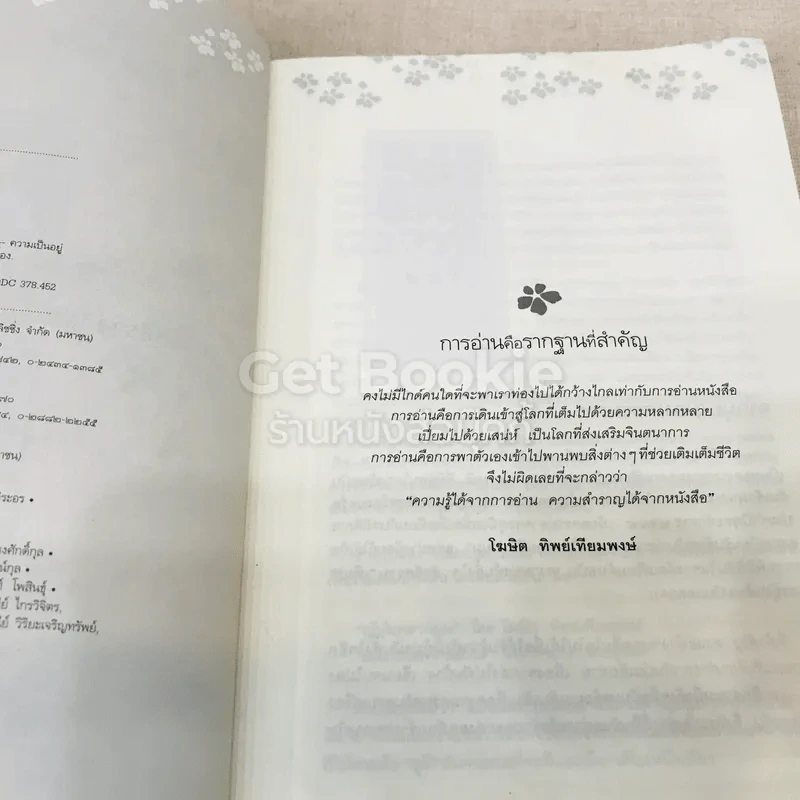 - ความเป็นอยู่
อง.
DDC 378.452
ลิชชิ่ง จำกัด (มหาชน)
๙๔๒, ๐-๒๔๓๔-๑๓๘๕
๗๐
๔, ๐-๒๘๘๒-๒๒๕๕
าชน)
ระอร •
งศักดิ์กุล •
น์กุล •
โพสินธุ์ •
ไกรวิจิตร,
วิริยะเจริญทรัพย์,
การอ่านคือรากฐานที่สำคัญ
Get Bookie
คงไม่มีไกด์คนใดที่จะพาเราท่องไปได้กว้างไกลเท่ากับการอ่านหนังสือ
การอ่านคือการเดินเข้าสู่โลกที่เต็มไปด้วยความหลากหลาย
ร้านหนังสือ
เปี่ยมไปด้วยเสน่ห์ เป็นโลกที่ส่งเสริมจินตนาการ
การอ่านคือการพาตัวเองเข้าไปพานพบสิ่งต่างๆ ที่ช่วยเติมเต็มชีวิต
จึงไม่ผิดเลยที่จะกล่าวว่า
“ความรู้ได้จากการอ่าน ความสำราญได้จากหนังสือ”
โฆษิต ทิพย์เทียมพงษ์